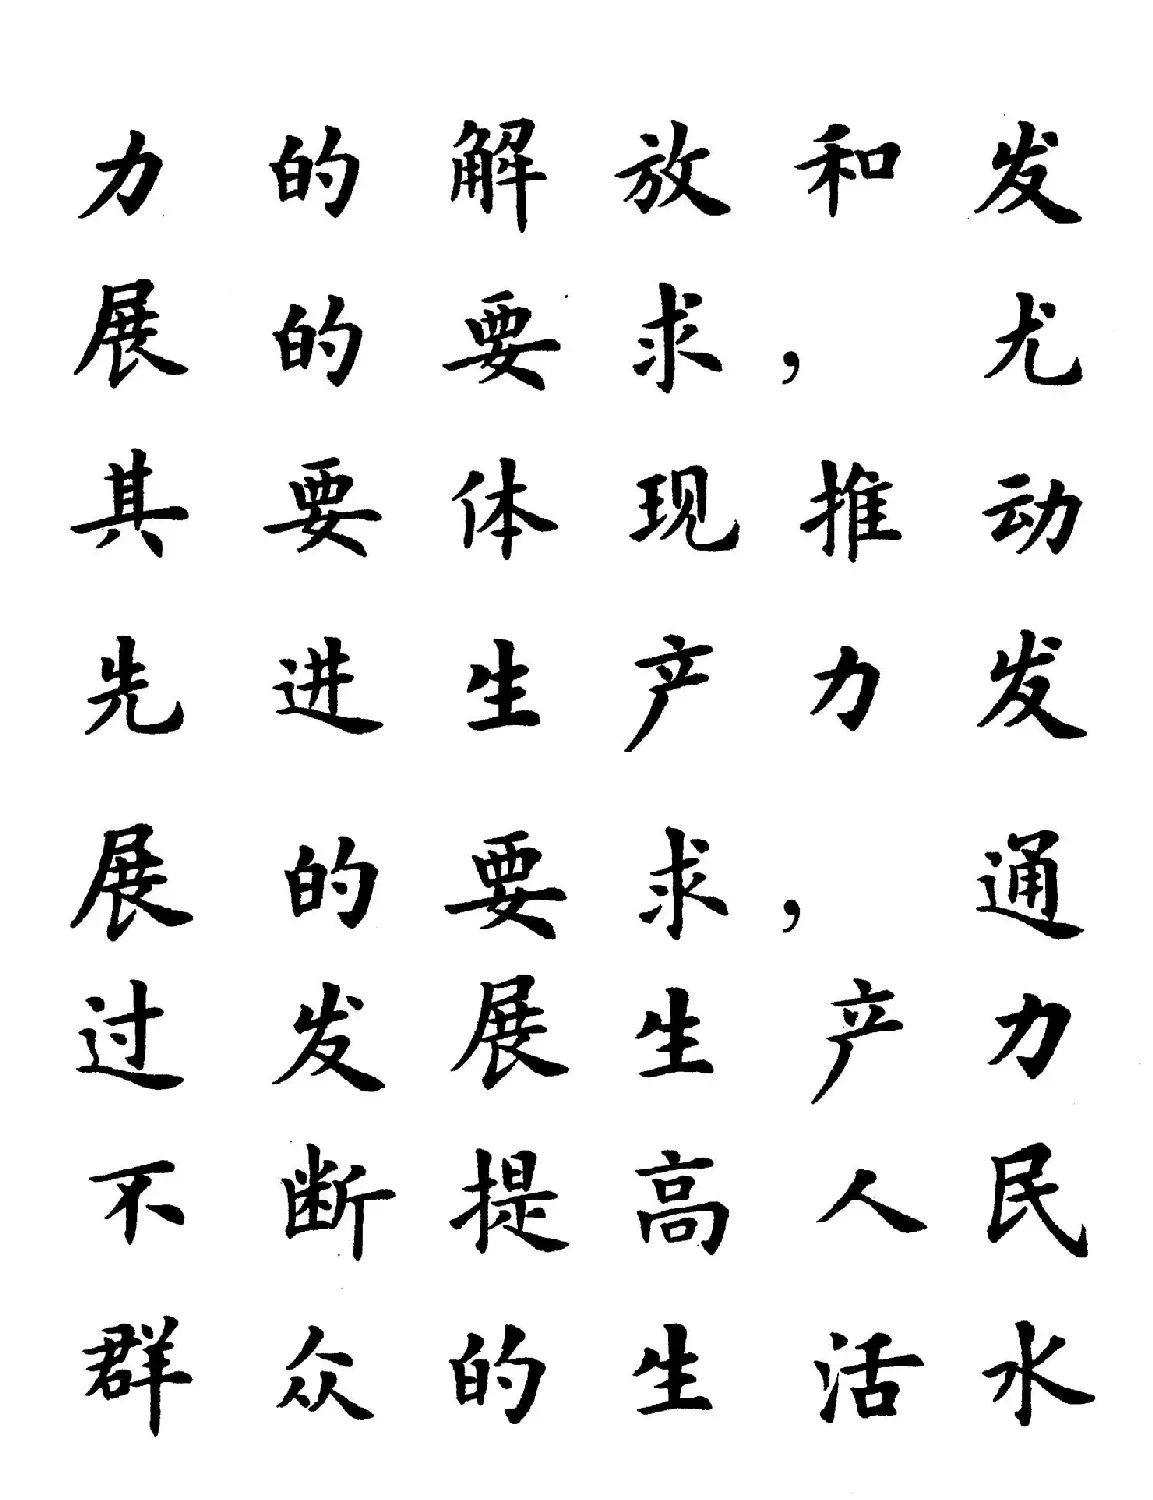 力的解放和发
展的要求，尤
其要体现推动
先进生产力发
展的要求，通
过发展生产力
不断提高人民
群众的生活水